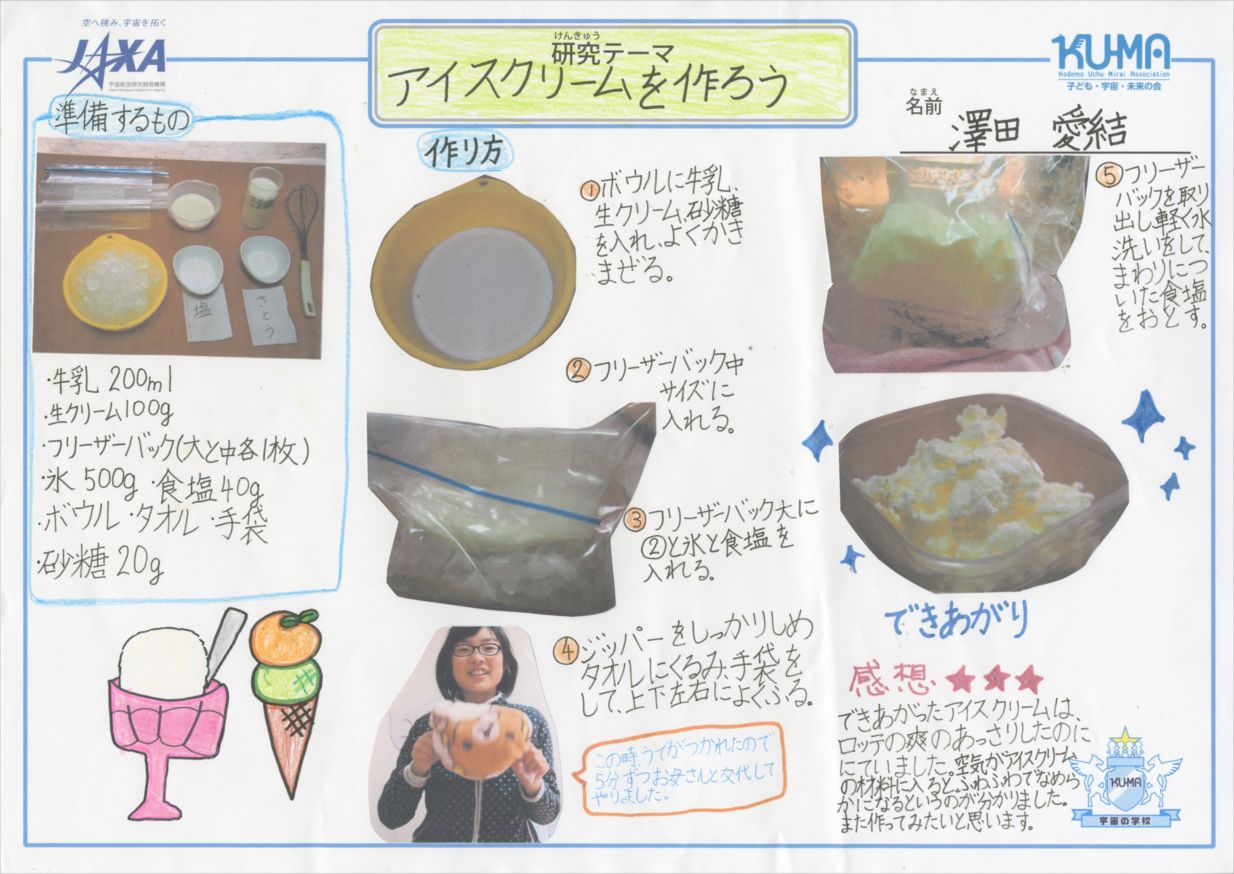 空へ挑み、宇宙を拓く
JAXA
宇宙航空研究開発機構
Japan Aerospace Exploration Agency
けんきゅう
研究テーマ
アイスクリームを作ろう
KU-MA
Kodomo Uchu Mirai Association
子ども・宇宙・未来の会
なまえ
名前
澤田 愛結
準備するもの
塩
さとう
・牛乳 200ml
・生クリーム100g
・フリーザーバック(大と中各1枚)
・氷 500g ・食塩40g
・ボウル ・タオル ・手袋
・砂糖 20g
作り方
①ボウルに牛乳、
生クリーム、砂糖
を入れ、よくかき
まぜる。
②フリーザーバック中
サイズに
入れる。
③フリーザーバック大に
②と氷と食塩を
入れる。
④ジッパーをしっかりしめ
タオルにくるみ、手袋を
して、上下左右によくふる。
この時、うでがつかれたので
5分ずつお母さんと交代して
やりました。
⑤フリーザー
バックを取り
出し軽く水
洗いをして、
まわりにつ
いた食塩
をおとす。
できあがり
感想
できあがったアイスクリームは、
ロッテの爽のあっさりしたのに
にていました。空気がアイスクリーム
の材料に入ると、ふわふわでなめら
かになるというのが分かりました。
また作ってみたいと思います。
KU-MA
宇宙の学校